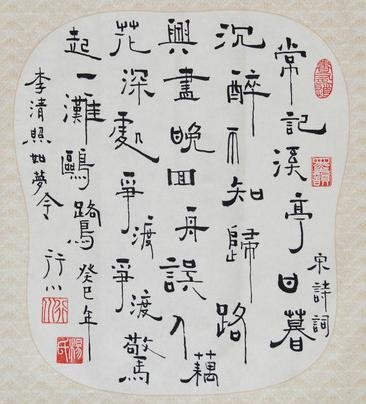 宋詩詞
常記溪亭日暮
沉醉不知歸路
興盡晚回舟誤入藕
花深處爭渡爭渡驚
起一灘鷗鷺癸巳年
李清照如夢令行